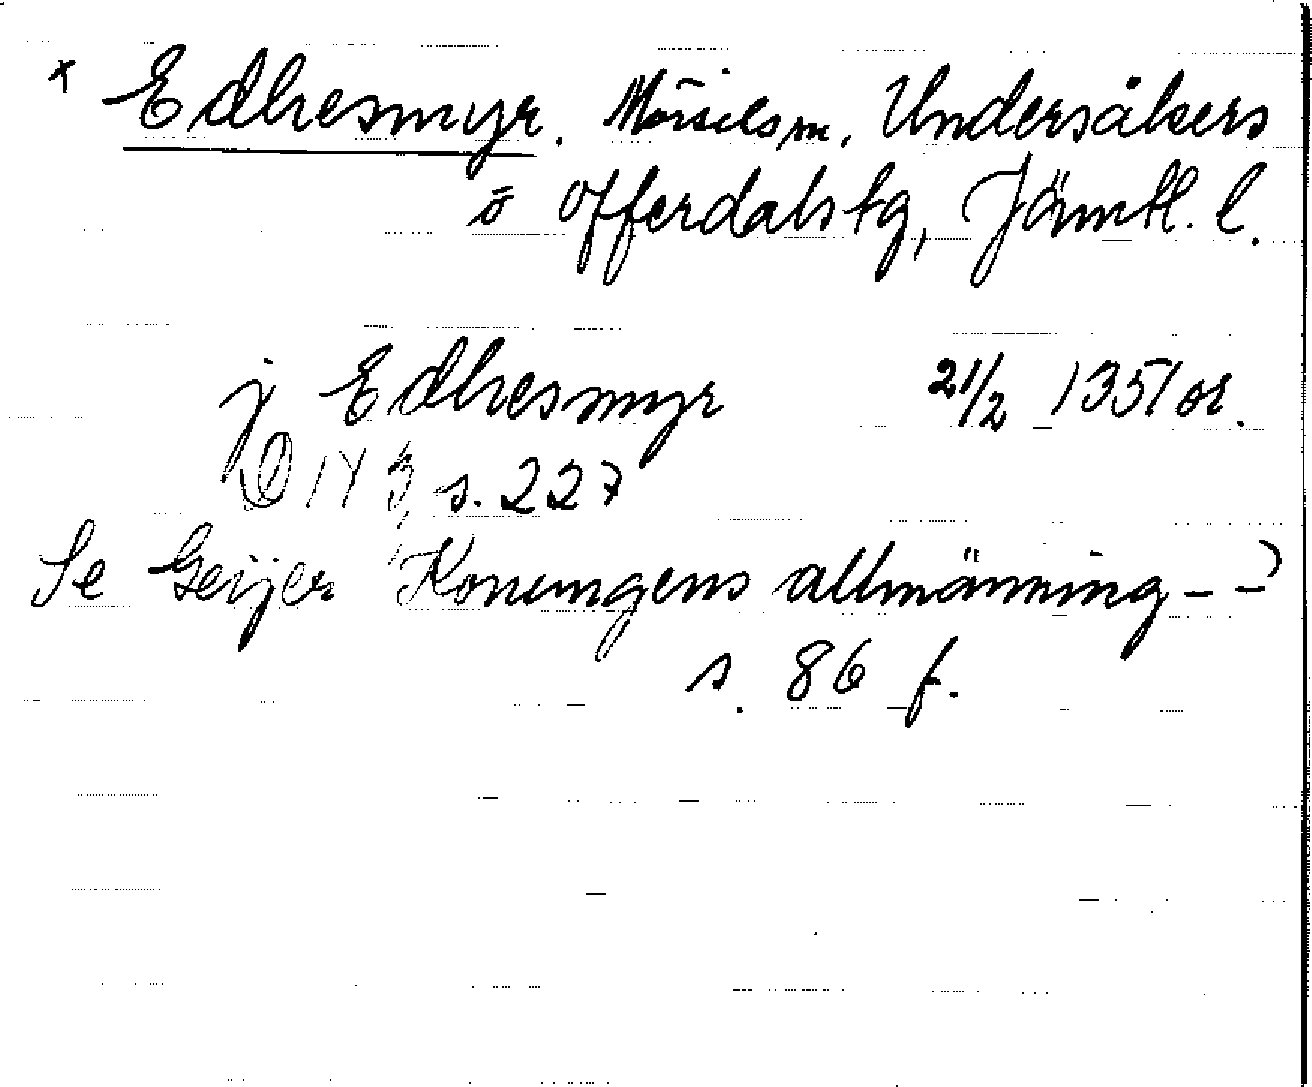 x Edhesmyr. Mörsils sn, Undersåkers
o Offerdals tg, Jämtl. l.
j Edhesmyr 21/2 1351 or.
D 143, s. 227
Se Geijer Konungens allmänning - -
s. 86 f.